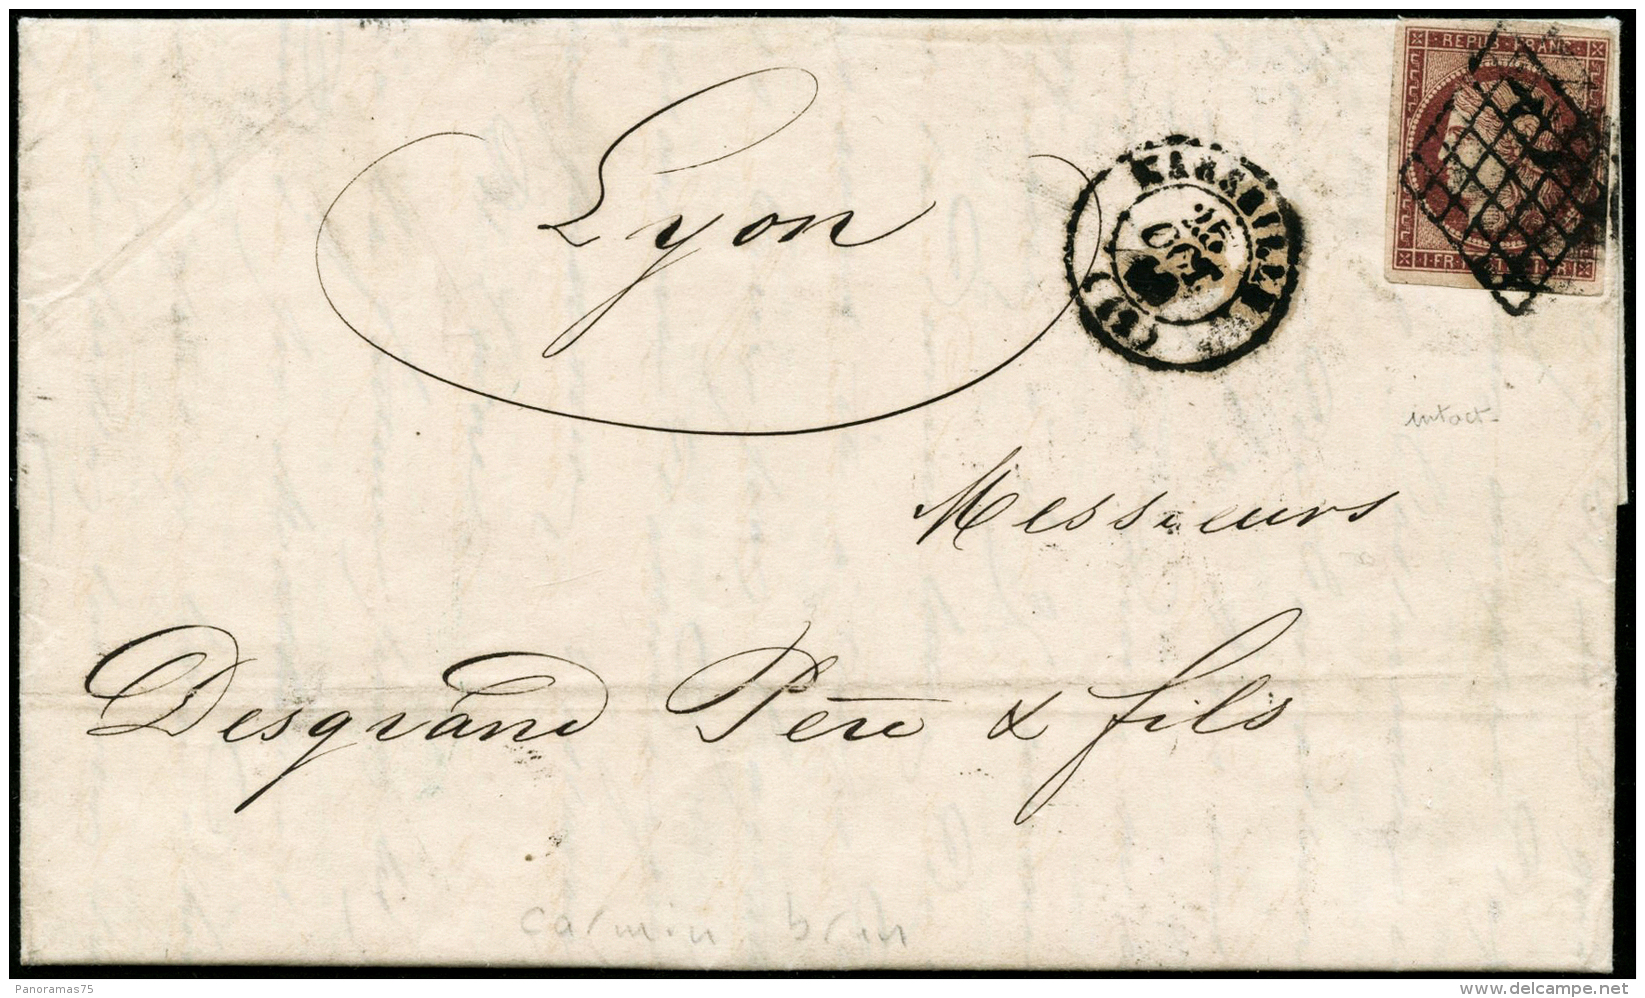 REPUB FRANC
1 FR
1 FR
Lyon
MARSEILLE
25
OCT
(12)
intact
Messieurs
Desgrand Père & fils
carmin brun
Panoramas75
delcampe.net